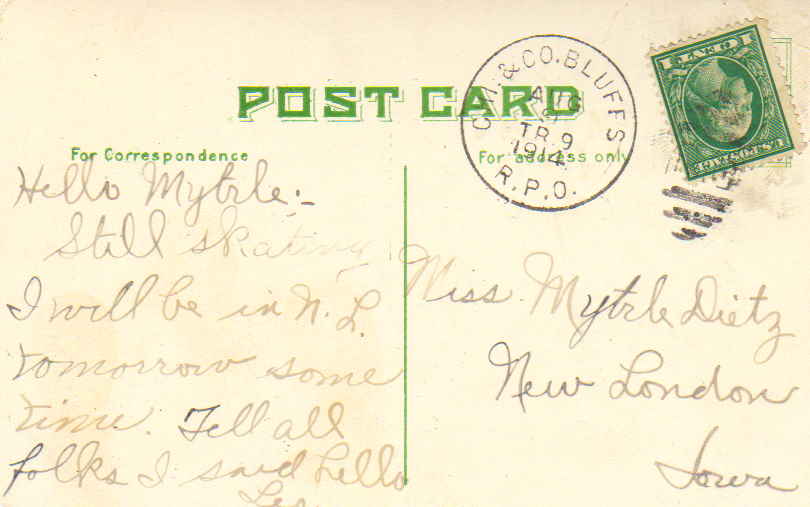 POST CARD
For Correspondence
Hello Myrtle:-
Still skating
I will be in N. L.
tomorrow some
time. Tell all
folks I said hello
Leo
CHI. & CO. BLUFFS
AUG
9
TR. 9
1914
R.P.O.
U.S. POSTAGE
1 CENT 1
For address only
Miss Myrtle Dietz
New London
Iowa